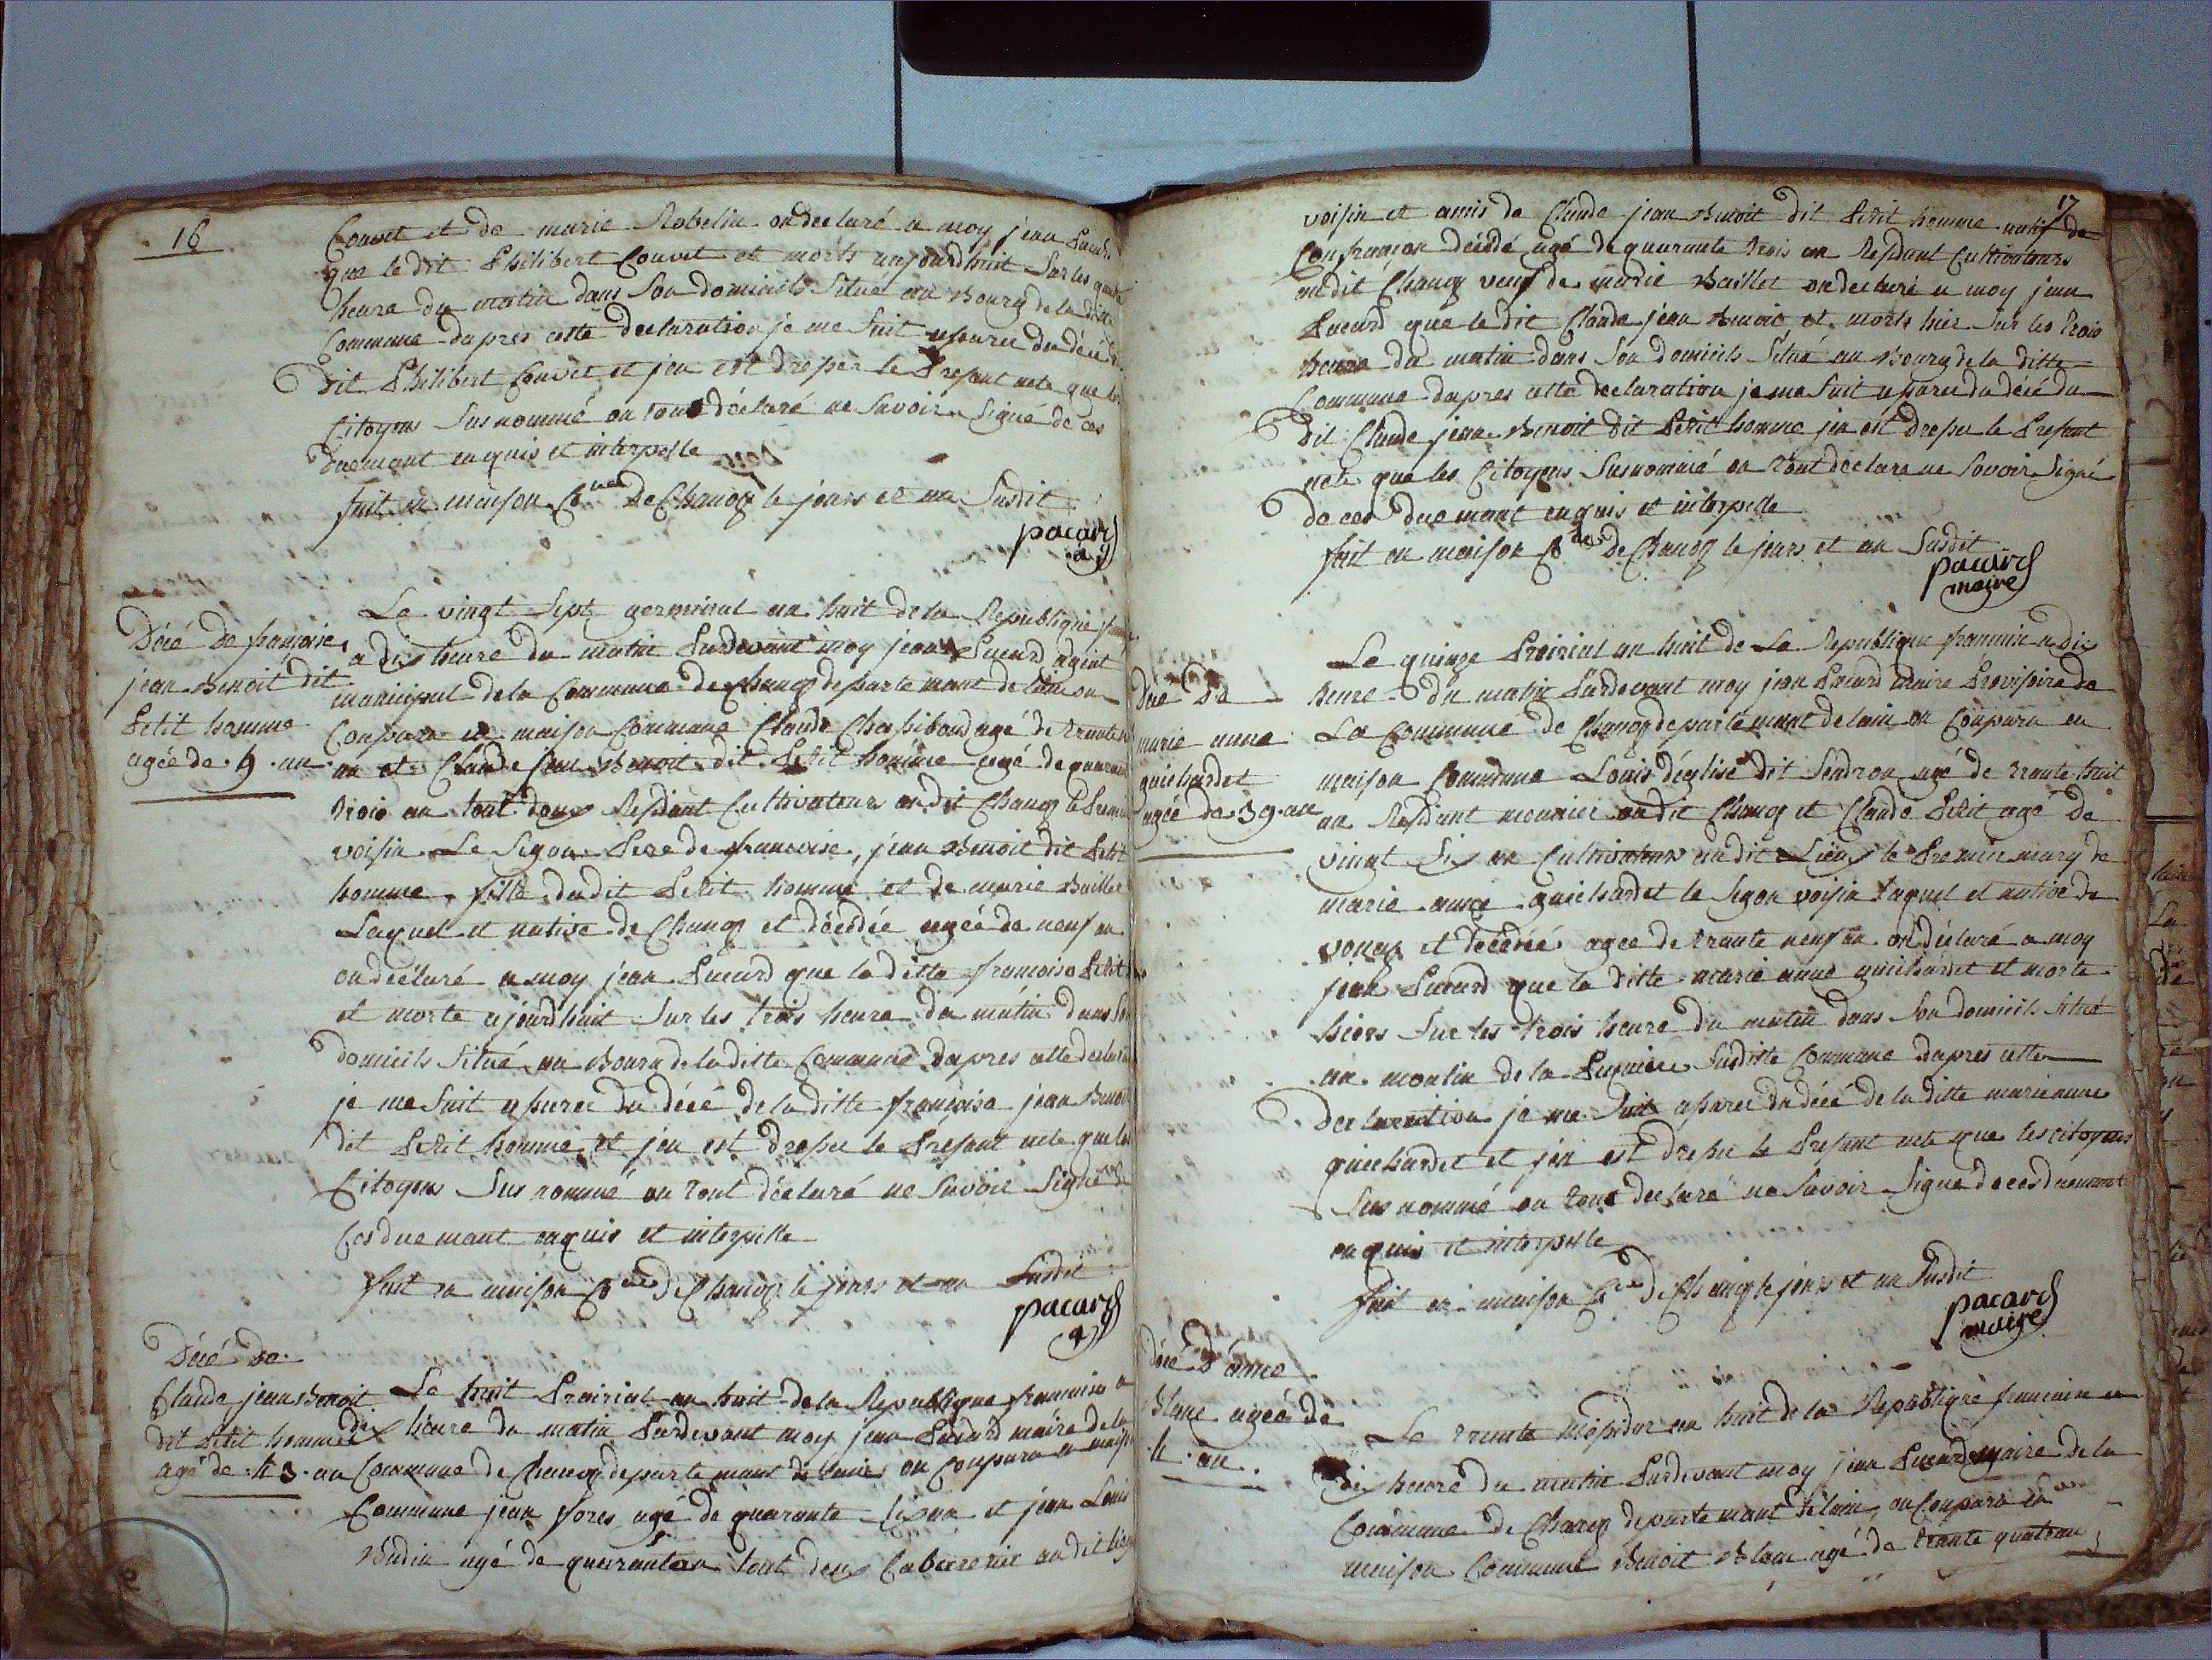 16
Couvet et de marie Robelin on declaré a moy jean Pacard
que le dit Philibert Couvet et morts aujourdhuit Sur les quatre
heure du matin dans Son domicils Situé au Bourg de la ditte
Commune dapres cette declaration je me Suit assurée du décé du
dit Philibert Couvet et jen est dresser le Present acte que les
Citoyens Sus nommé on tous déclaré ne Savoir Signé de ces
duemant enquis et interpelle
fait en maison Cne de Chanoz le jours et an Susdit
pacard
ag
Décé de françoise
jean Benoit dit
Petit homme
agée de 9 an
Le vingt Sept germinal an huit de la Republique
a dix heure du matin Pardevant moy jean Pacard agent
municipal de la Commune de Chanoz departemant de lain on
Conparu en maison Commune Claude Chesibaud agé de trante
an et Claude jean Benoit dit Petit homme agé de quarante
trois an tout deux Residant Cultivateurs au dit Chanoz le Premier
voisin Le Segon Pere de francoise, jean Benoit dit Petit
homme, fille du dit Petit homme et de marie Baillet
Laquel et native de Chanoz et décédée agée de neuf an
on déclaré a moy jean Pacard que la ditte francoise Petit
et morte ajourdhuit Sur les trois heure du matin dans Son
domicils Situé au Bourg de la ditte Commune dapres cette declaration
je me Suit assurée du décé de la ditte françoise jean Benoit
dit Petit homme et jen est dresser le Présent acte que les
Citoyens Sus nommé on tout déclaré ne Savoir Signé de
Ces duemant enquis et interpelle
fait en maison Cne de Chanoz le jours et an Susdit
pacard
ag
Décé de
Claude jean Benoit
dit Petit homme
agé de 43 an
Le huit Prairial an huit de la Republique francoise a
dix heure du matin Pardevant moy jean Pacard maire de la
Commune de Chanoz departemant de lain on Conparu en maison
Commune jean fores agé de quarante Six an et jean Louis
Budin agé de quarantan tout deux Cabaretier au dit lieu
17
voisin et amis de Claude jean Benoit dit Petit homme natif de
Confrançon décédé agé de quarante trois an Residant Cultivateurs
au dit Chanoz veuf de marie Baillet on declaré a moy jean
Pacard que le dit Claude jean Benoit et morts hier Sur les trois
heure du matin dans Son domicils Situé au Bourg de la ditte
Commune dapres cette declaration je me Suit assurée du décé du
dit Claude jean Benoit dit Petit homme jen est dresser le Present
acte que les Citoyens Susnommé on tout declare ne Savoir Signé
de ces duemant enquis et interpelle
fait en maison Cne de Chanoz le jours et an Susdit
pacard
maire
Décé de
marie anne
guichardet
agée de 39 an
Le quinze Prairial an huit de La Republique francoise a dix
heure du matin Pardevant moy jean Pacard maire Provisoire de
La Commune de Chanoz departemant de lain on Conparu en
maison Commune Louis déglise dit Sendron agé de trante huit
an Residant meunier au dit Chanoz et Claude Petit agé de
vingt Six an Cultivateurs au dit Lieu le Premier mary de
marie anne guichardet le Segon voisin Laquel et native de
vonas et décédée agee de trante neuf an on déclaré a moy
jean Pacard que la ditte marie anne guichardet et morte
hiers Sur les trois heure du matin dans Son domicils Situé
au moulin de la Susditte Commune dapres cette
declaration je me Suit assurée du décé de la ditte marie anne
guichardet et jen est dresser le Present acte que les citoyens
Sus nommé on tout declaré ne Savoir Signé de ces duemant
enquis et interpelle
fait en maison Cne de Chanoz le jours et an Susdit
pacard
maire
décé d'anne
Blanc agée de
4 an
Le trante Mesidor an huit de la Republique francoise a
dix heure du matin Pardevant moy jean Pacard maire de la
Commune de Chanoz departemant de lain, on Conparu en
maison Commune Benoit Blanc agé de trante quatre an